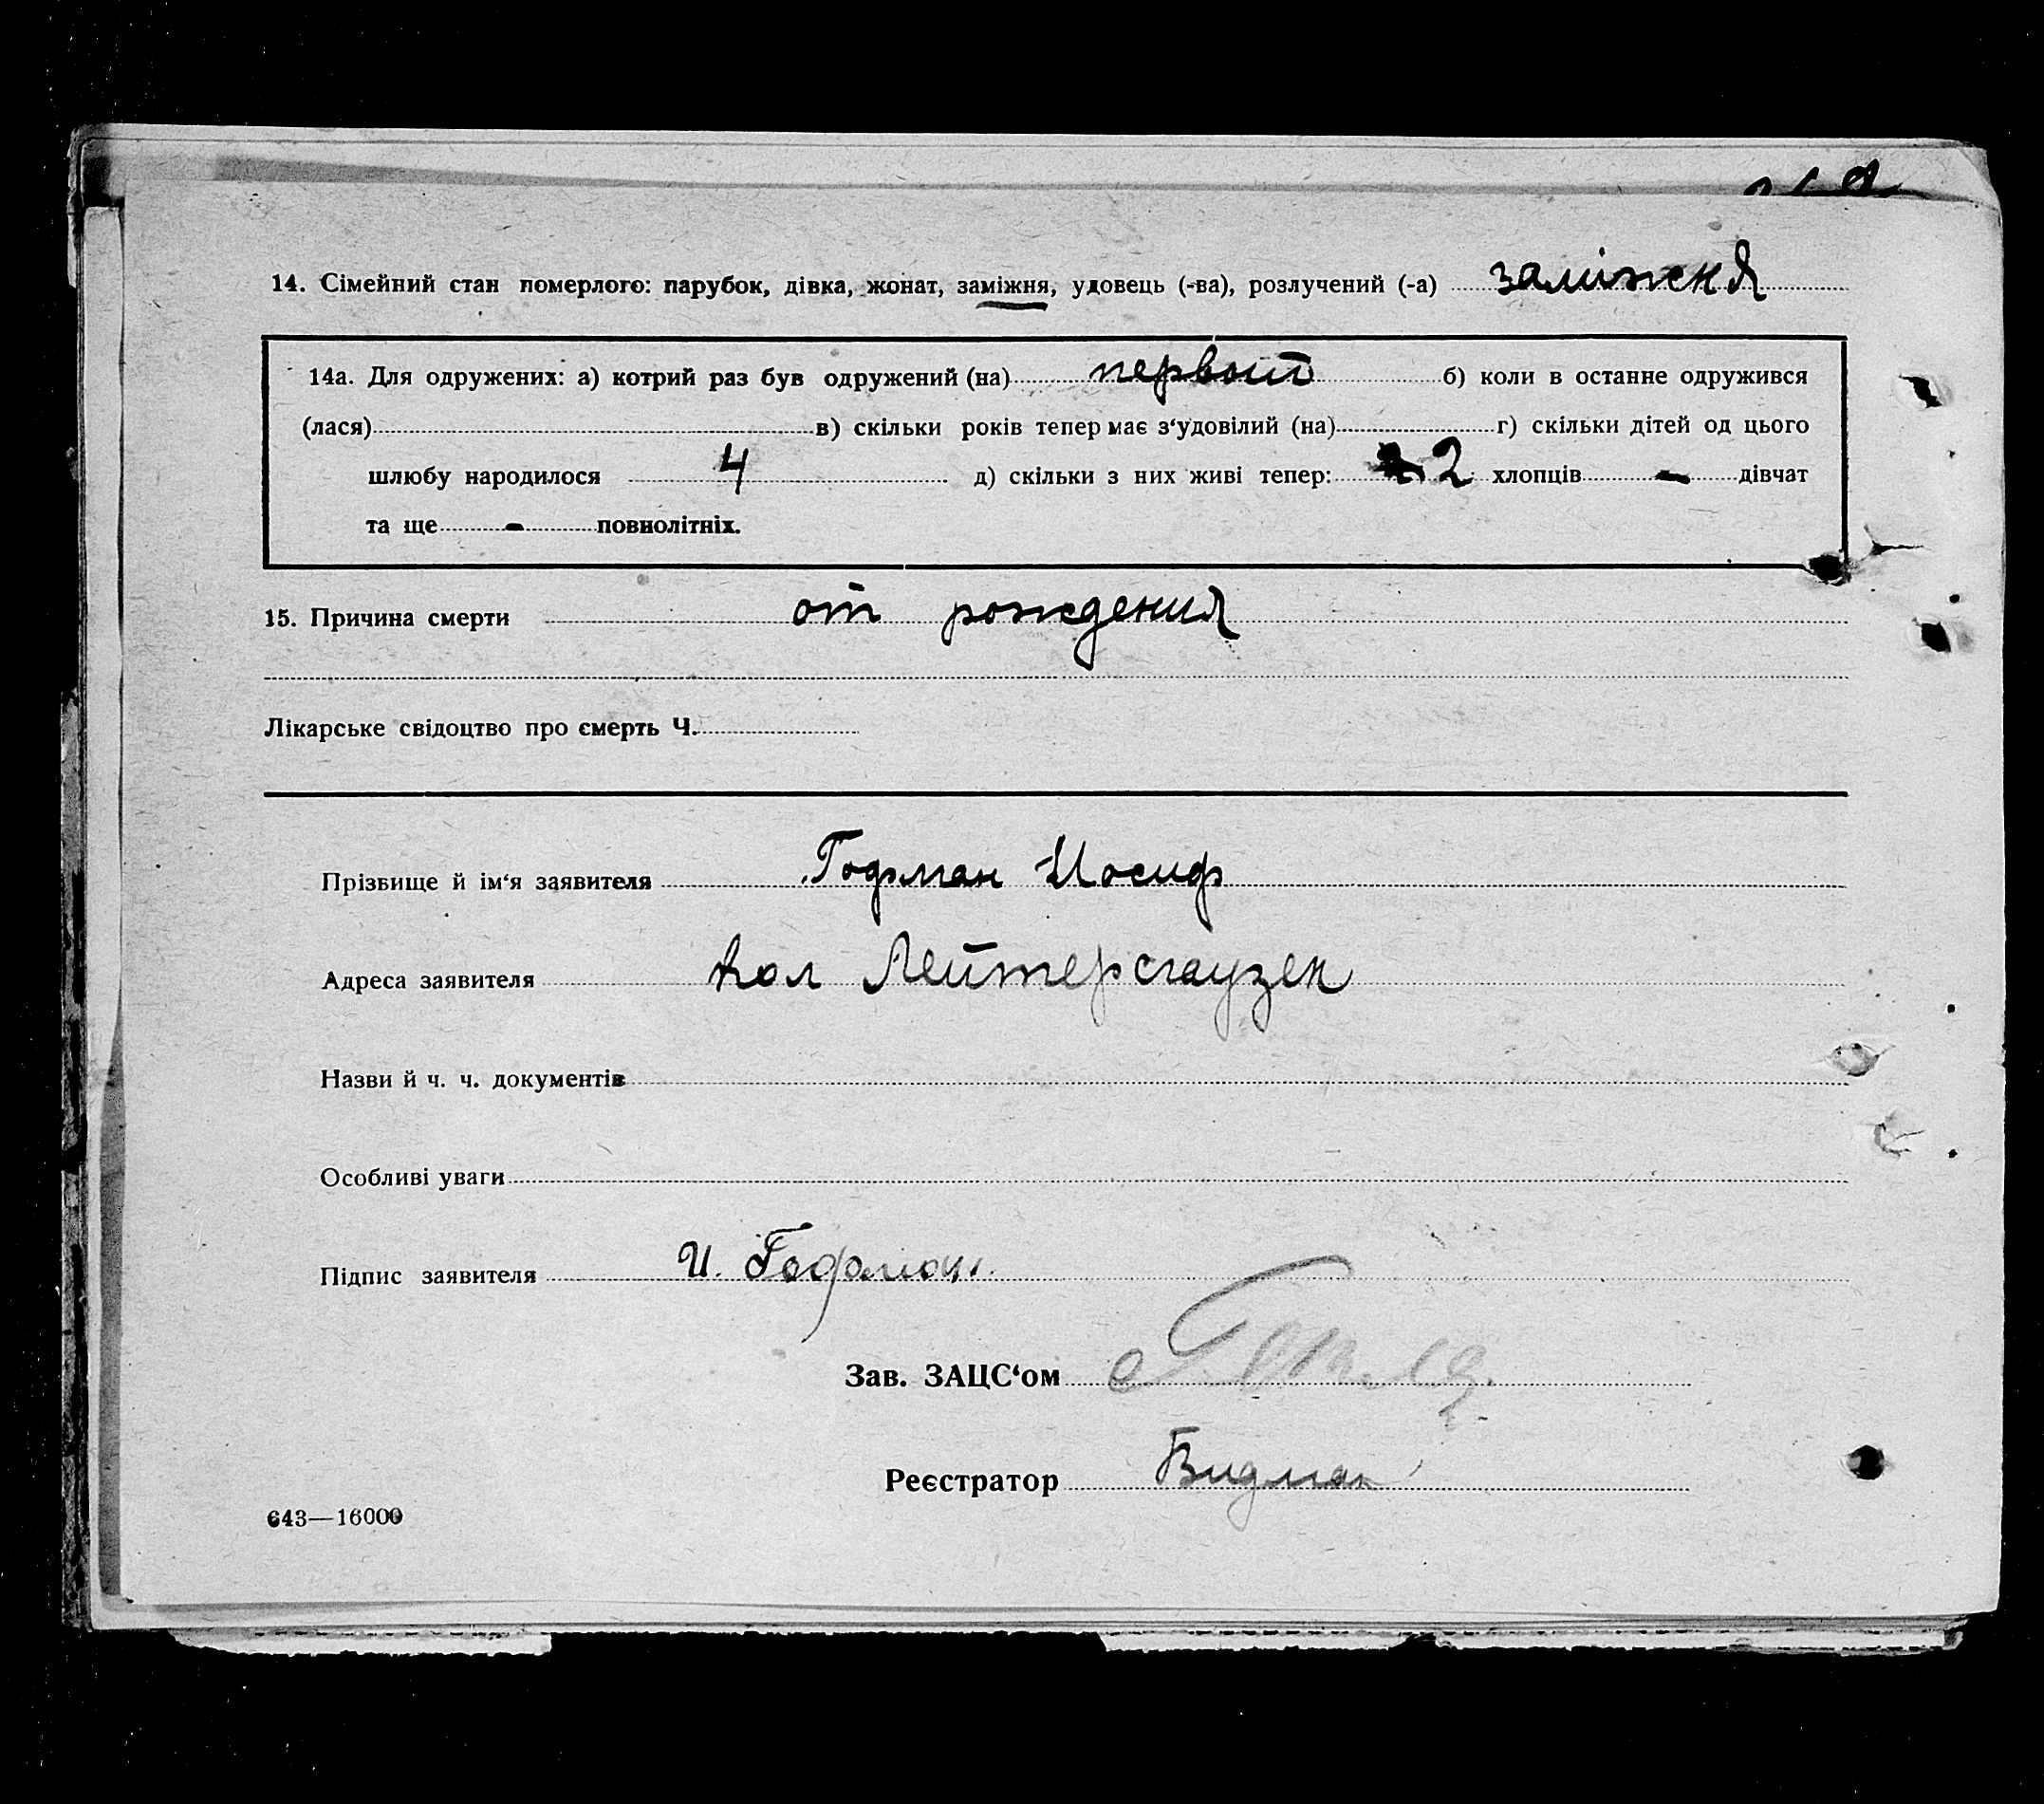 14. Сімейний стан померлого: парубок, дівка, жонат, заміжня, удовець (-ва), розлучений (-а) заміжня
14а. Для одружених: а) котрий раз був одружений (на) первый б) коли в останне одружився
(лася) в) скільки років тепер має з‘удовілий (на) г) скільки дітей од цього
шлюбу народилося 4 д) скільки з них живі тепер: 2 хлопців - дівчат
та ще - повнолітніх.
15. Причина смерти от рождения
Лікарське свідоцтво про смерть Ч.
Прізвище й ім‘я заявителя Гофман Иосиф
Адреса заявителя Кол Лейтерсгаузен
Назви й ч. ч. документів
Особливі уваги
Підпис заявителя И. Гофман.
Зав. ЗАЦС‘ом
Реєстратор Видман
643—16000